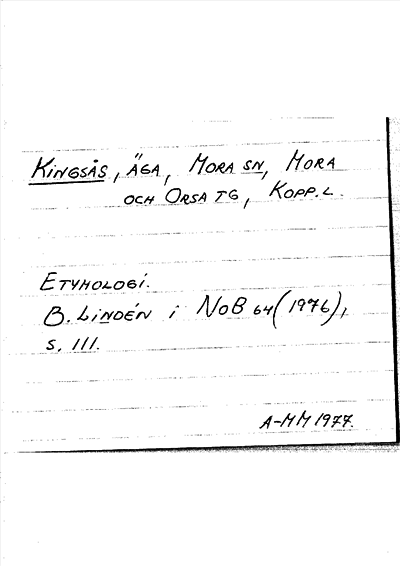 KINGSÅS, ÄGA, MORA SN, MORA
OCH ORSA TG, KOPP.L.
ETYMOLOGI.
B. LINDÉN i NoB 64 (1976),
S. 111.
A-MM 1977.